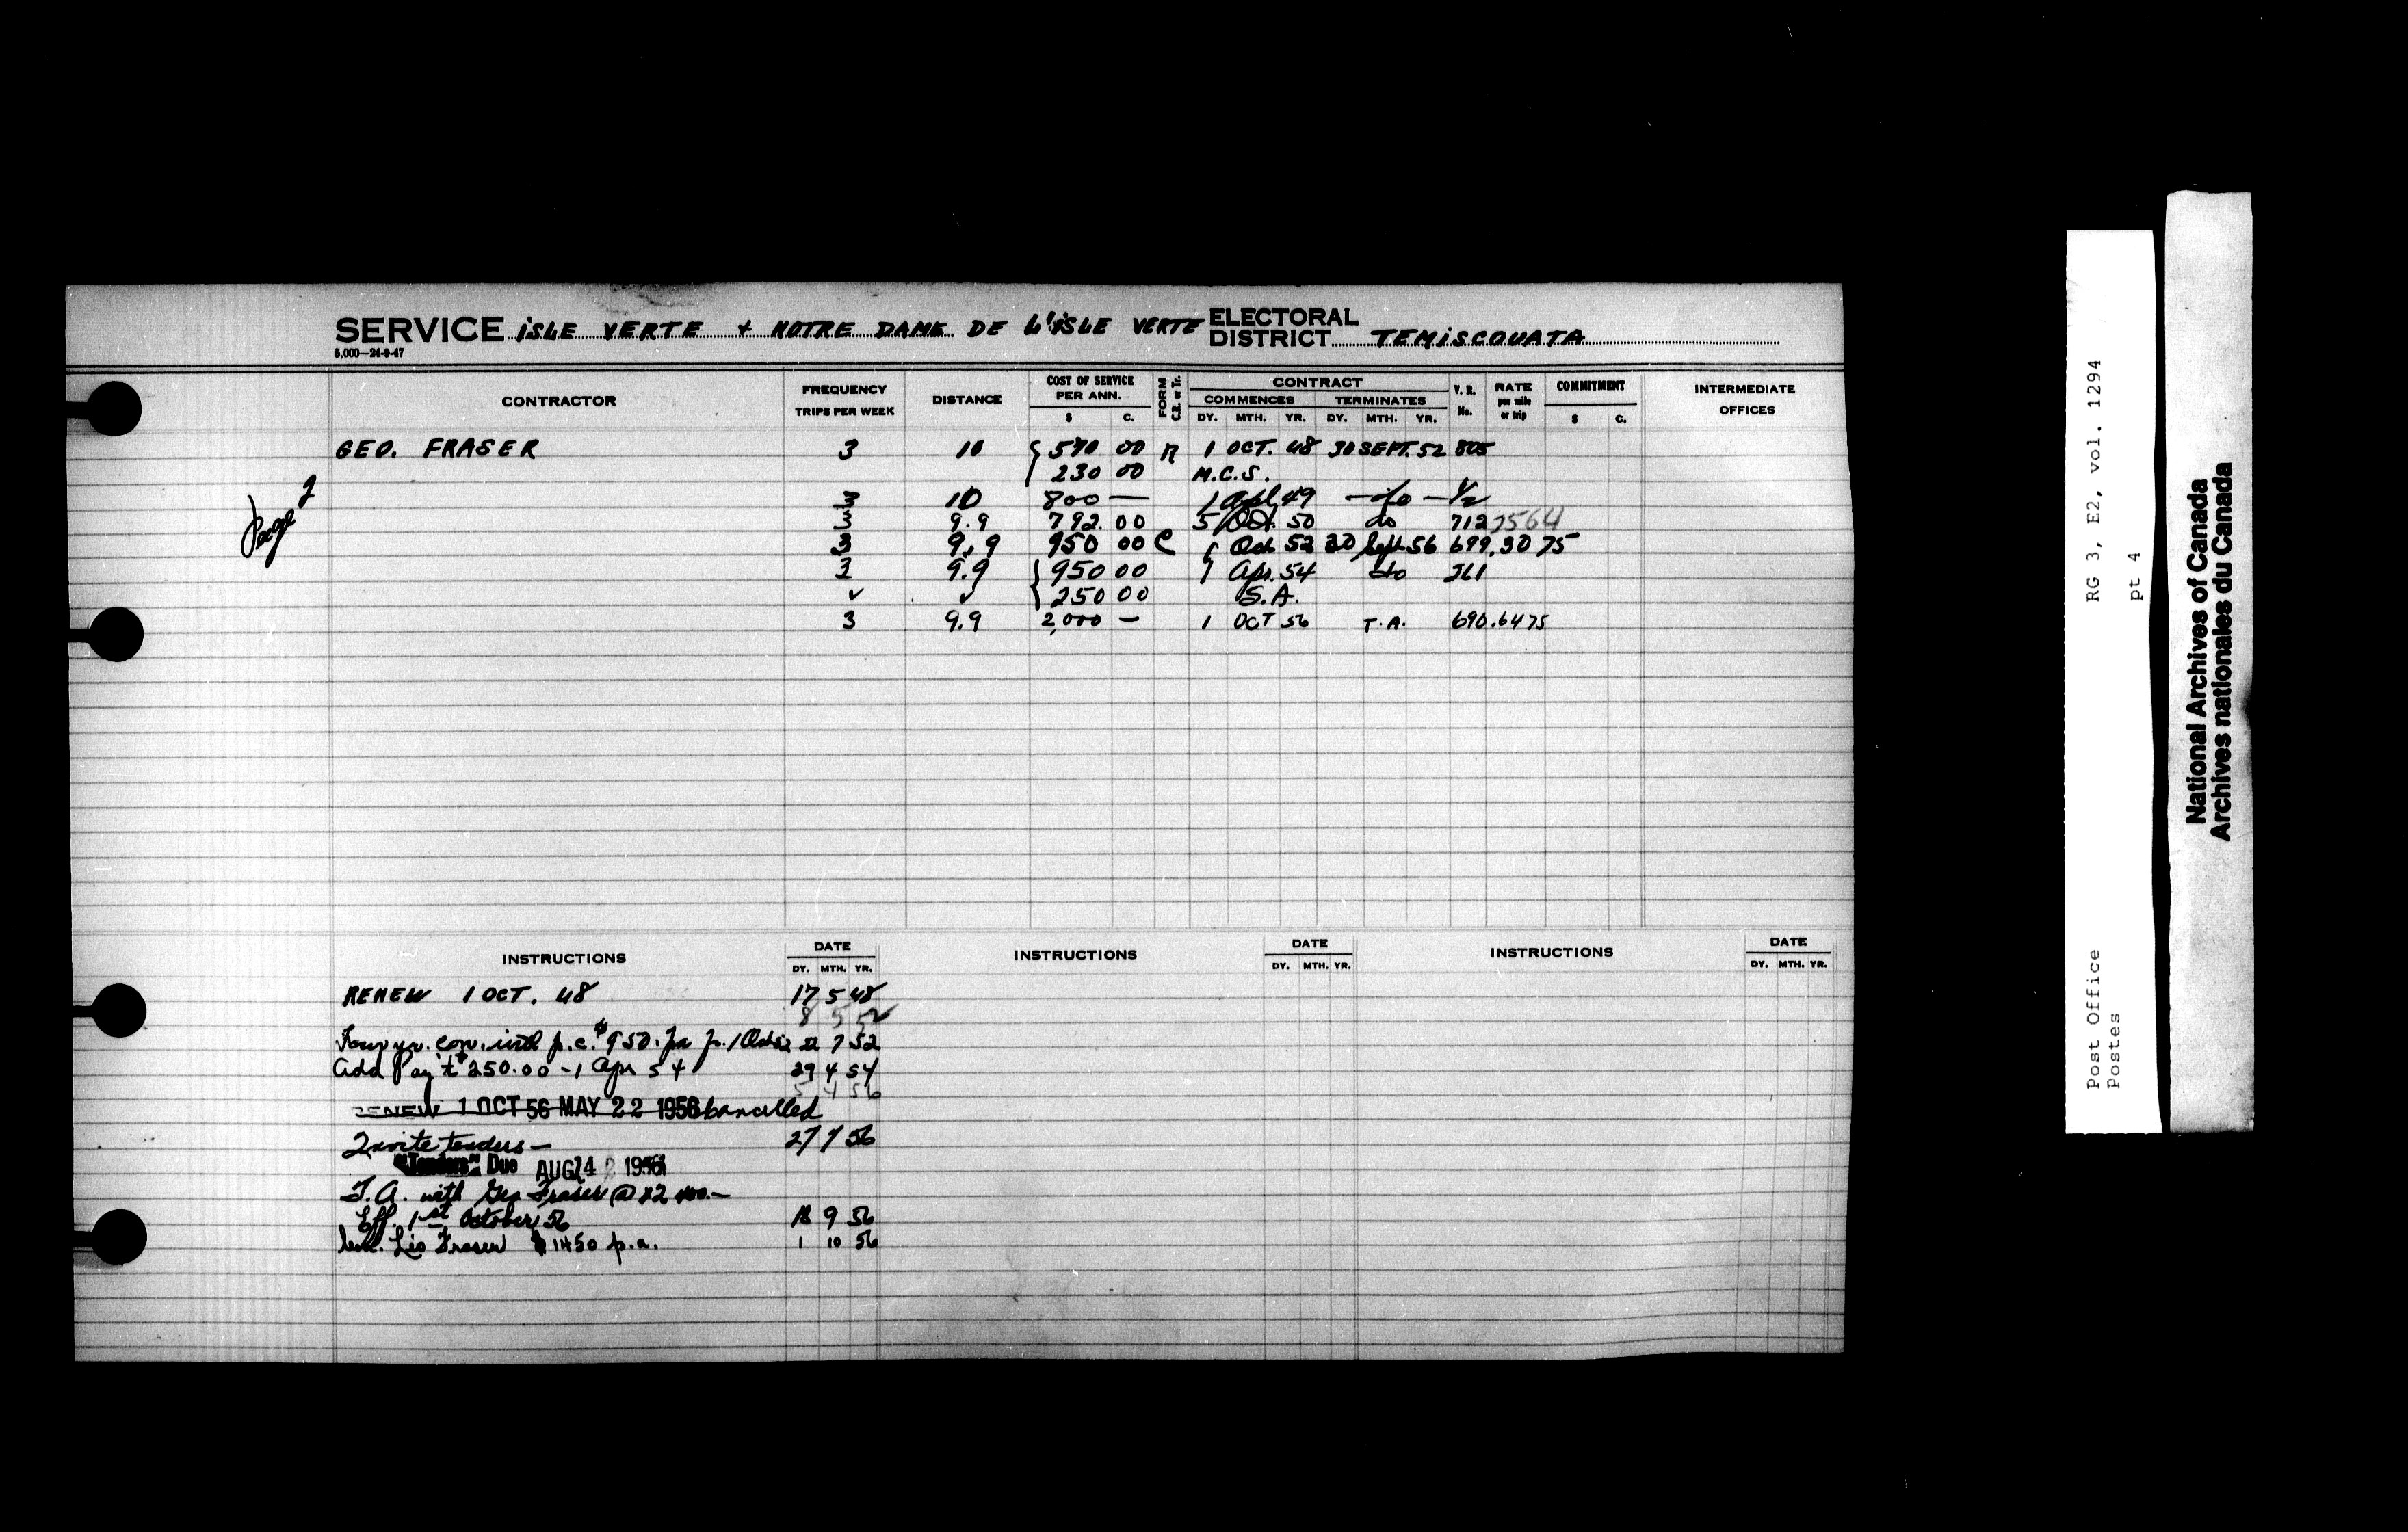 SERVICE ISLE VERTE + NOTRE DAME DE L'ISLE VERTE ELECTORAL DISTRICT TEMISCOUATA
5,000—24-9-47
CONTRACTOR FREQUENCY TRIPS PER WEEK DISTANCE COST OF SERVICE PER ANN. $ C. FORM C.R. or Tr. CONTRACT COMMENCES DY. MTH. YR. TERMINATES DY. MTH. YR. V. R. No. RATE per mile or trip COMMITMENT $ C. INTERMEDIATE OFFICES
GEO. FRASER 3 10 570 00 R 1 OCT. 48 30 SEPT. 52 805
230 00 M.C.S.
Page 2
3 10 800 — 1 Apl 49 — do — 1/2
3 9.9 792.00 5 Oct. 50 do 712 .5564
3 9.9 950 00 C 1 Oct 52 30 Sept 56 699 .3075
3 9.9 950 00 1 Apr. 54 do
✓ ✓ 250 00 S.A.
3 9.9 2,000 — 1 OCT 56 T.A. 690 .6475
INSTRUCTIONS DATE DY. MTH. YR. INSTRUCTIONS DATE DY. MTH. YR. INSTRUCTIONS DATE DY. MTH. YR.
RENEW 1 OCT. 48 17 5 48
8 5 52
Four yr. con. with p.c. $950. pa fr. 1 Oct 52 22 7 52
Add Pay't $250.00 - 1 Apr 54 29 4 54
5 4 56
RENEW 1 OCT 56 MAY 22 1956 cancelled
Invite tenders — 27 7 56
"Tenders" Due AUG 24 1956
T.A. with Geo Fraser @
Eff. 1st October 56 18 9 56
Fraser $1450 p.a. 1 10 56
RG 3, E2, vol. 1294
pt 4
Post Office
Postes
National Archives of Canada
Archives nationales du Canada